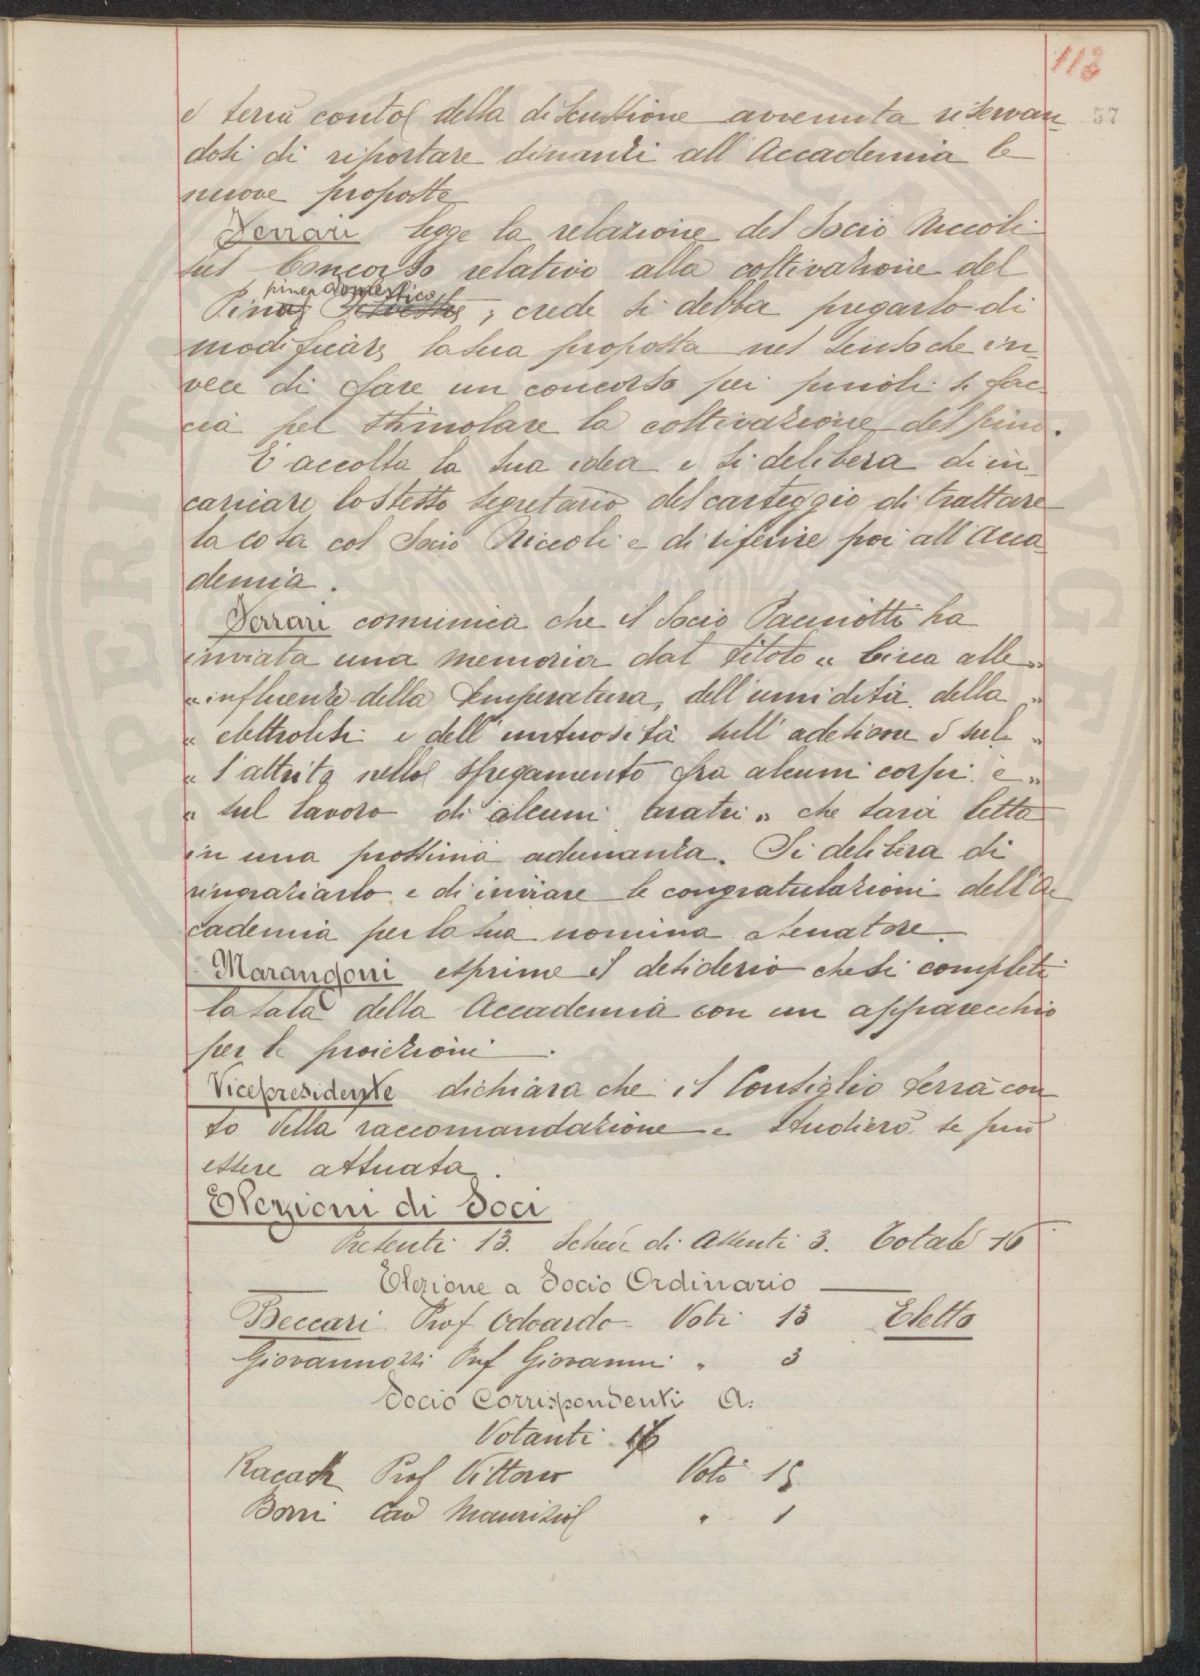 113
57
e terrà conto della discussione avvenuta riservan-
dosi di riportare dinanzi all'Accademia le
nuove proposte
Ferrari legge la relazione del Socio Niccoli
sul Concorso relativo alla coltivazione del
pino domestico
Pinus Silvestris, crede si debba pregarlo di
modificare la sua proposta nel senso che in-
vece di fare un concorso pei pinoli si fac-
cia pel stimolare la coltivazione del pino.
E' accolta la sua idea e si delibera di in-
caricare lo stesso segretario del carteggio di trattare
la cosa col Socio Niccoli e di riferire poi all'Acca
demia.
Ferrari comunica che il Socio Pacinotti ha
inviata una memoria dal titolo "Circa alle"
"influenze della temperatura, dell'umidità della"
"elettrolisi e dell'untuosità sull'adesione e sul"
"l'attrito nello sfregamento fra alcuni corpi e"
"sul lavoro di alcuni aratri" che sarà letta
in una prossima adunanza. Si delibera di
ringraziarlo e di inviare le congratulazioni dell'Ac
cademia per la sua nomina a Senatore.
Marangoni esprime il desiderio che si completi
la sala della Accademia con un apparecchio
per le proiezioni.
Vicepresidente dichiara che il Consiglio terrà con
to della raccomandazione e studierà se può
essere attuata.
Elezioni di Soci
Presenti 13. Schede di Assenti 3. Totale 16
Elezione a Socio Ordinario
Beccari Prof Odoardo Voti 13 Eletto
Giovannozzi Prof Giovanni " 3
Socio Corrispondenti A.
Votanti 16
Racah Prof Vittorio Voti 15
Borri Cav Maurizio " 1